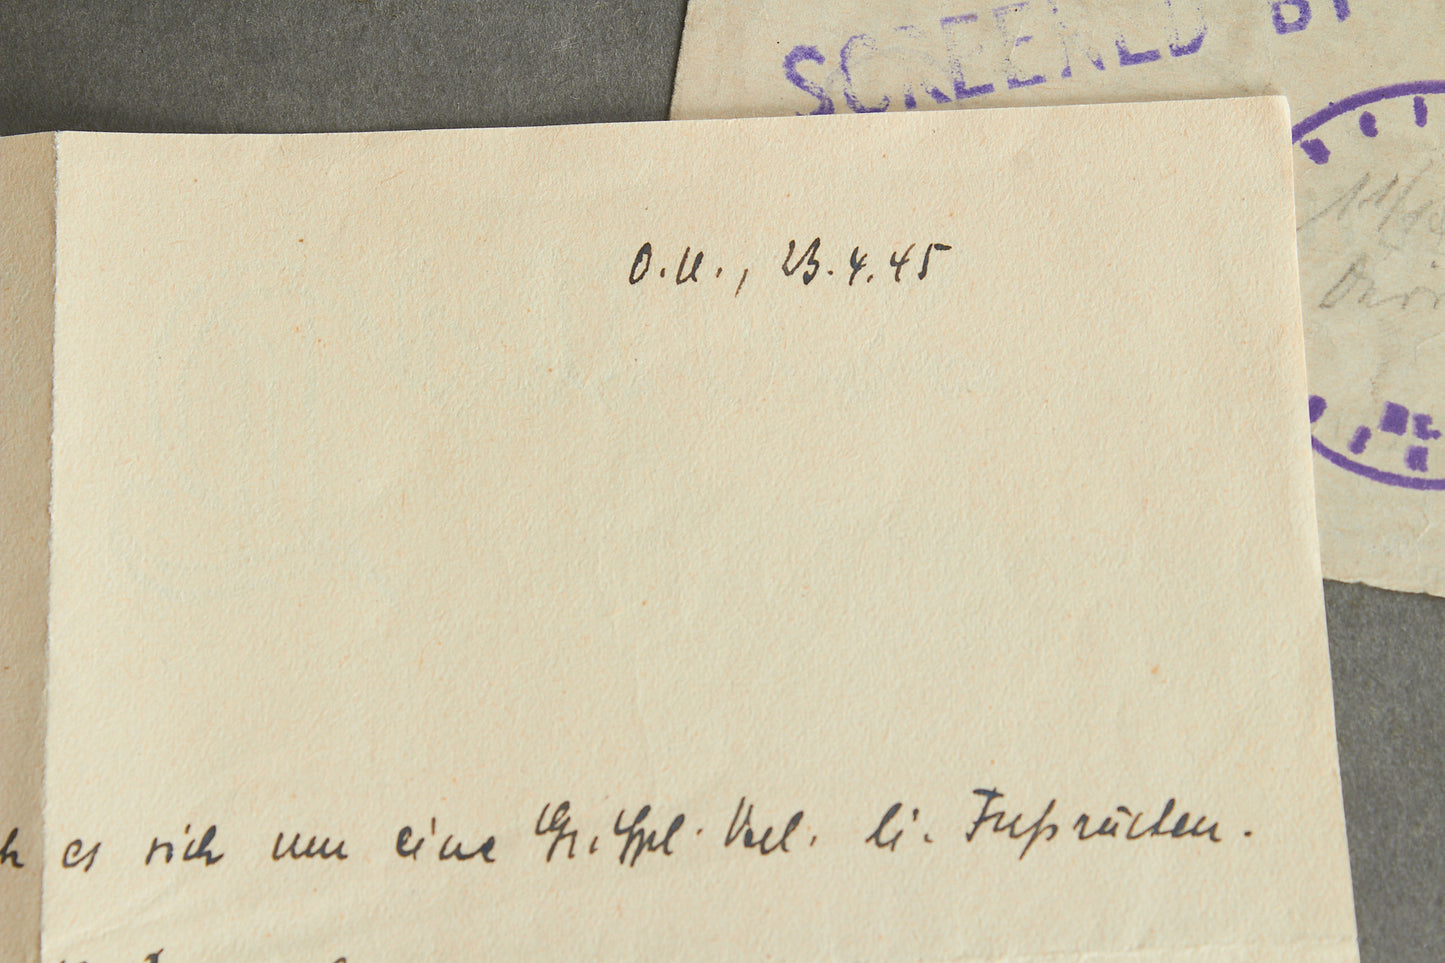 SCREENED BY
O.U., 23.4.45
es sich um eine Gr. Spl. Verl. li. Fußrücken.